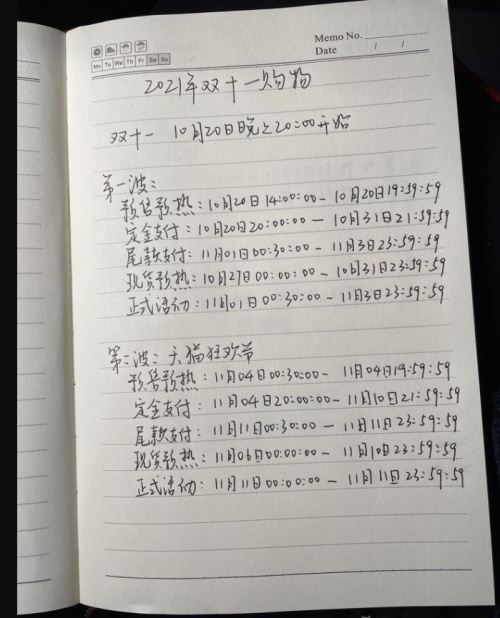 Memo No.
Date / /
Mo Tu We Th Fr Sa Su
2021年双十一购物
双十一 10月20日晚上20:00开始
第一波:
预售预热:10月20日14:00:00-10月20日19:59:59
定金支付:10月20日20:00:00-10月31日21:59:59
尾款支付:11月01日00:30:00-11月3日23:59:59
现货预热:10月27日00:00:00-10月31日23:59:59
正式活动:11月01日00:30:00-11月3日23:59:59
第二波:天猫狂欢节
预售预热:11月04日00:30:00-11月04日19:59:59
定金支付:11月04日20:00:00-11月10日21:59:59
尾款支付:11月11日00:30:00-11月11日23:59:59
现货预热:11月06日00:00:00-11月10日23:59:59
正式活动:11月11日00:00:00-11月11日23:59:59